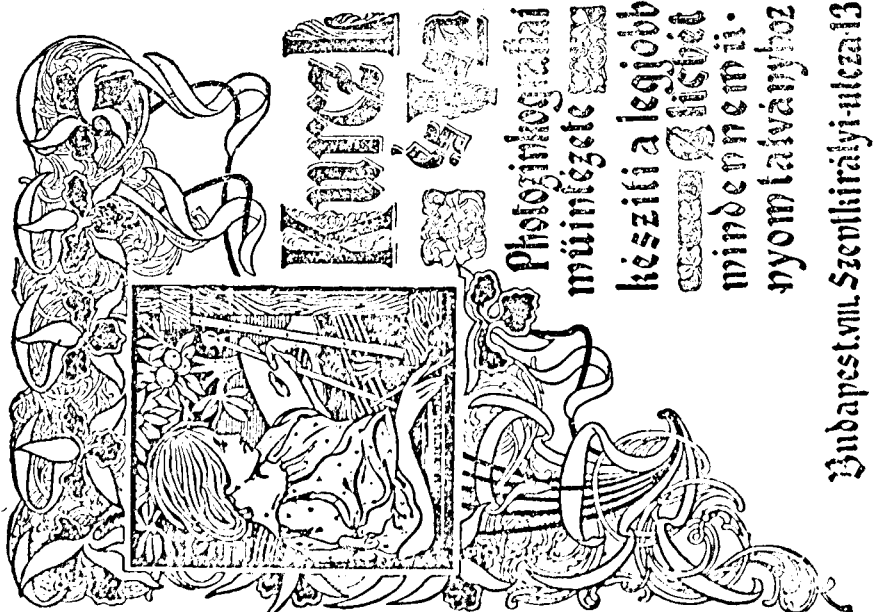 Photozinkografiai
műintézete
készíti a legjobb
Clichét
mindennemű-
nyomtatványhoz
Budapest.VIII. Szentkirályi-utcza 13